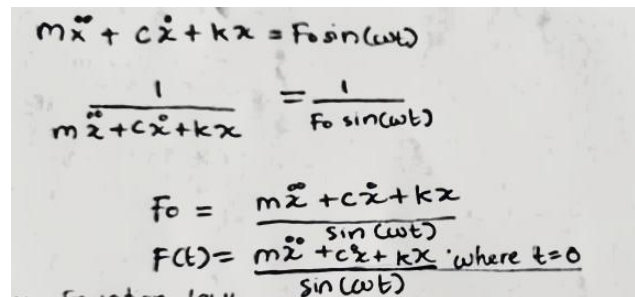 mẍ + cẋ + kx = Fo sin(ωt)
1 / mẍ + cẋ + kx = 1 / Fo sin(ωt)
Fo = mẍ + cẋ + kx / sin(ωt)
F(t) = mẍ + cẋ + kx / sin(ωt) . where t=0